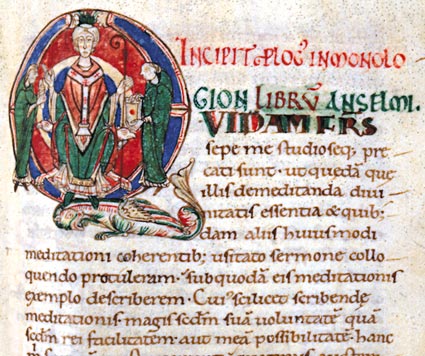 INCIPIT PLOG' IN MONOLO
GION LIBRŪ ANSELMI.
QUIDAM FRS
sepe me studioseq; pre
cati sunt. ut quedā que
illis de meditanda diui
nitatis essentia & quib;
dam aliis huiusmodi
meditationi coherentib; usitato sermone collo
quendo protuleram. sub quodā eis meditationis
exemplo describerem. Cui' scilicet scribendę
meditationis magis scdm suā voluntatē quā
scdm rei facilitatem aut meā possibilitatē hanc